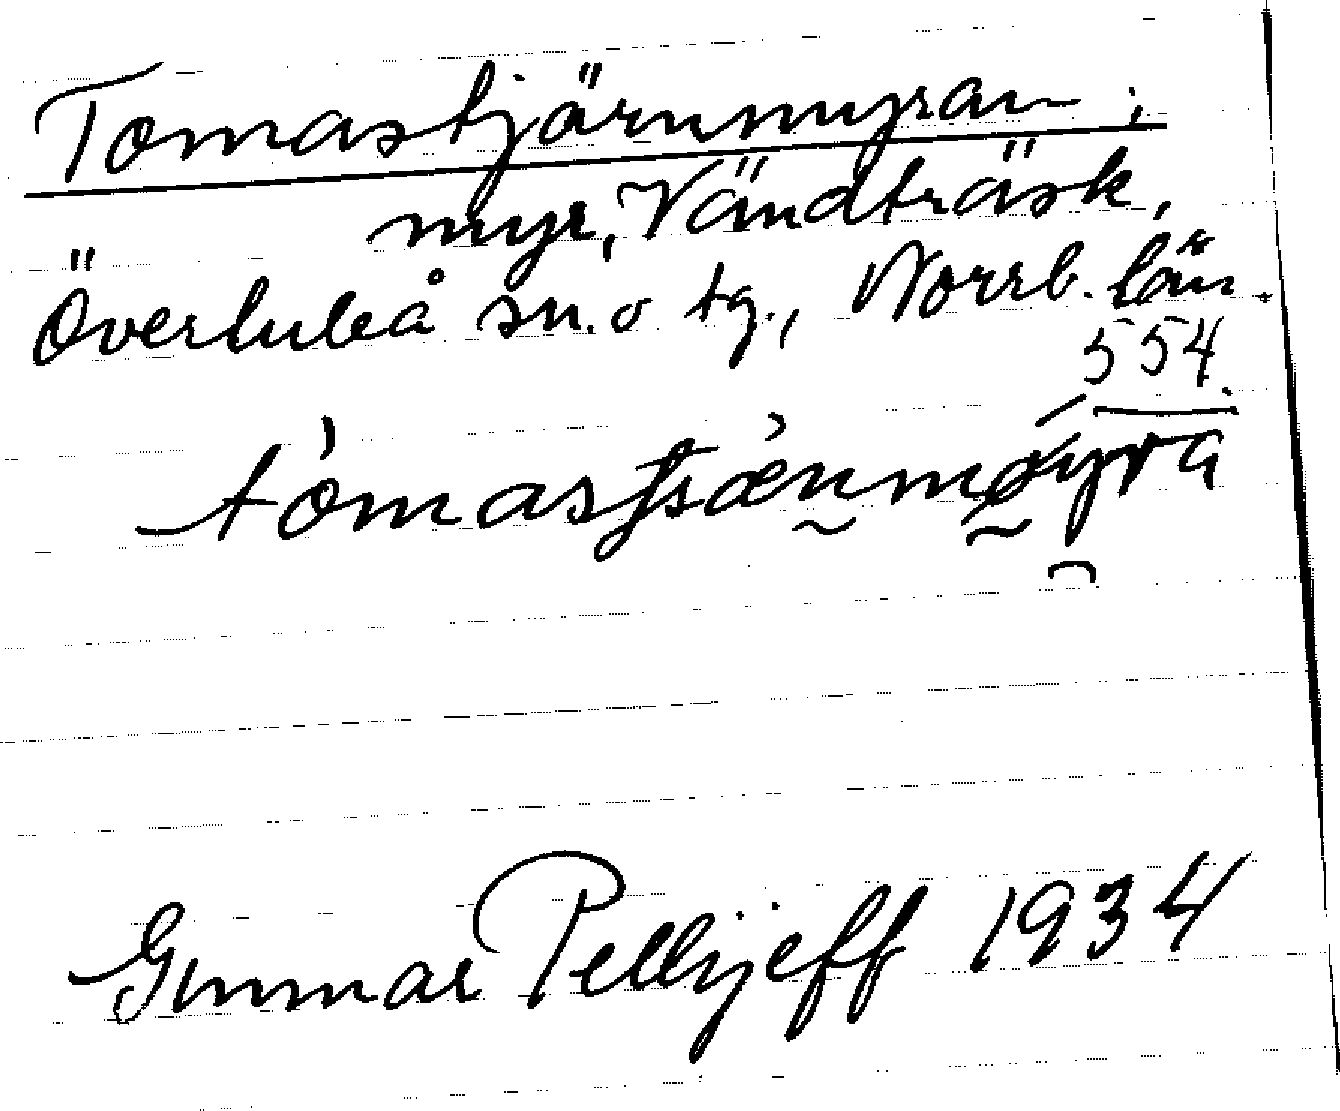 Tomastjärnmyran;
myr, Vändträsk,
Överluleå sn. o tg., Norrb. län.
554.
Gunnar Pellijeff 1934